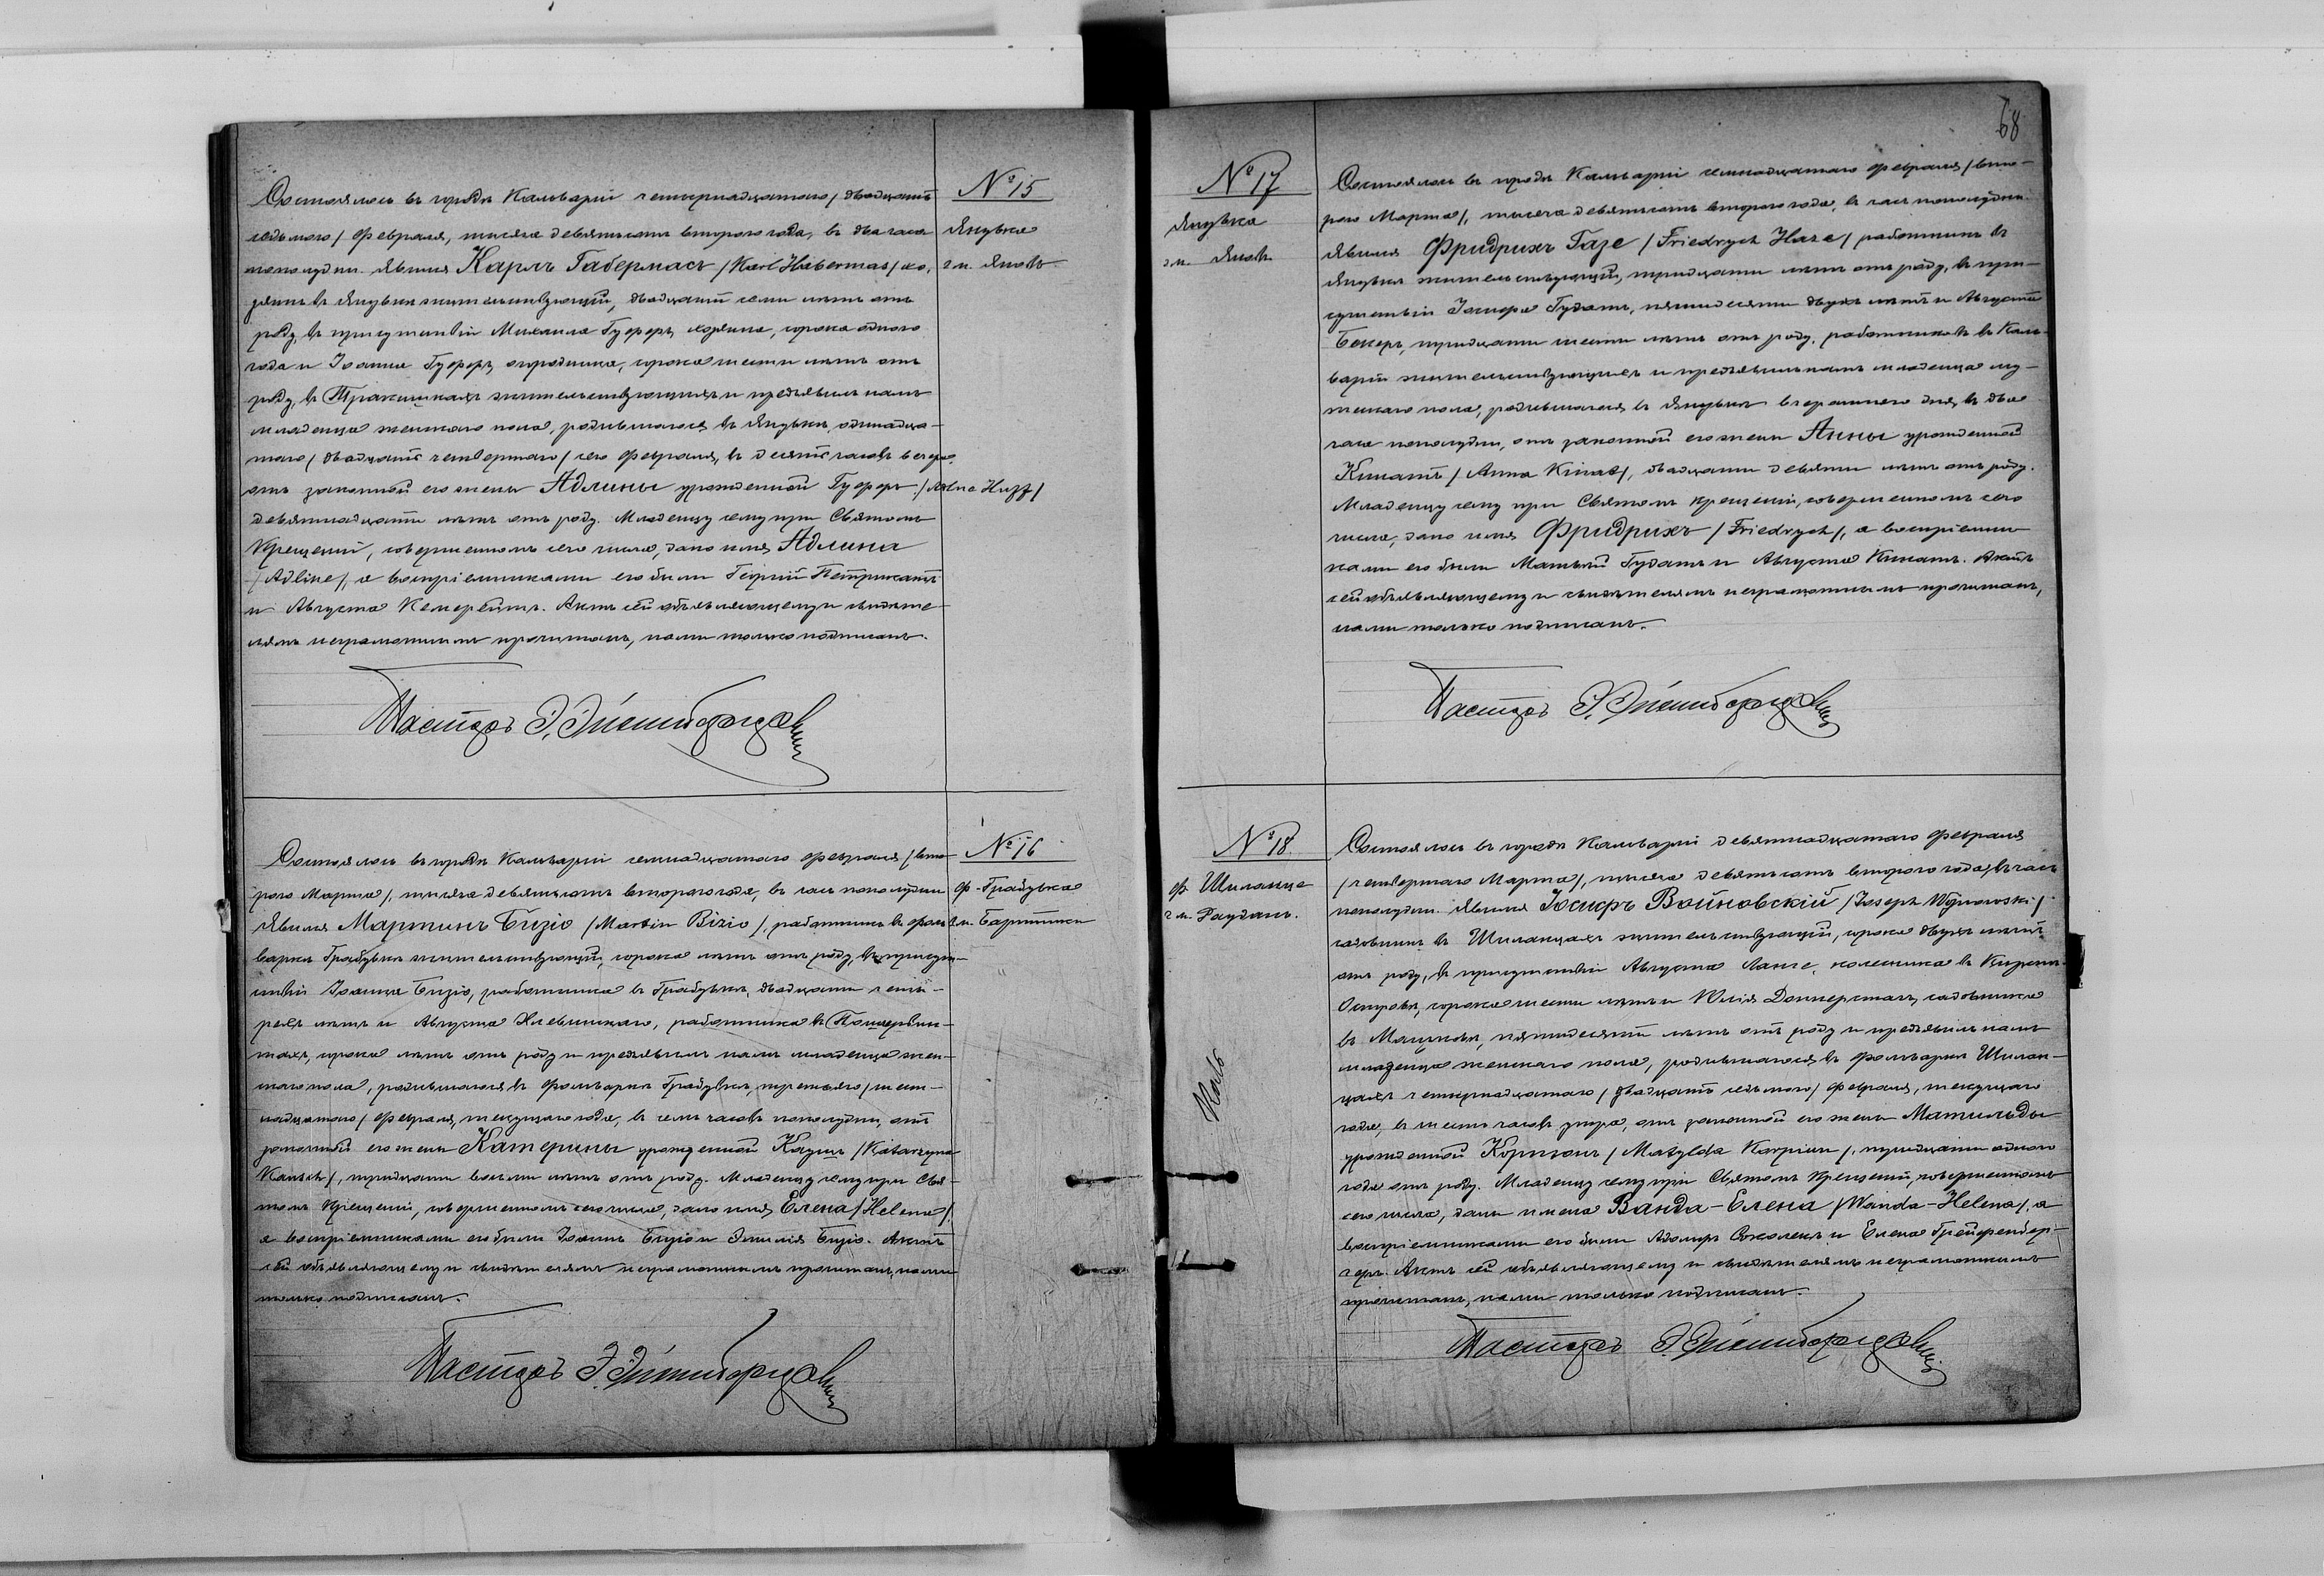 № 15
Янувка
г. м. Яновъ
Состоялось въ городѣ Кальваріи четырнадцатаго /двадцать
седьмого/ Февраля, тысяча девятьсотъ второго года, въ два часа
пополудни. Явился Карлъ Габермасъ /Karl Habermas/ хо-
зяинъ въ Янувкѣ жительствующій, двадцати семи лѣтъ отъ
роду, въ присутствіи Михаила Гуферъ, хозяина, сорока одного
года и Іоанна Гуферъ, огородника, сорока шести лѣтъ отъ
роду, въ Тракишкахъ жительствующихъ и предъявилъ намъ
младенца женскаго пола, родившагося въ Янувкѣ, одинадца-
таго /двадцать четвертаго/ сего Февраля, въ десять часовъ вечера,
отъ законной его жены Адлины урожденной Гуферъ /
девятнадцати лѣтъ отъ роду. Младенцу сему при Святомъ
Крещеніи, совершенномъ сего числа, дано имя Адлина
/Adline/, а воспріемниками его были Георгій Петрикатъ
и Августа Кемерейтъ. Актъ сей объявляющему и свидѣте-
лямъ неграмотнымъ прочитанъ, нами только подписанъ.
Пасторъ Э.
№ 16
ф. Грабувка
г. м.
Состоялось въ городѣ Кальваріи семнадцатаго Февраля /вто-
рого Марта/, тысяча девятьсотъ второго года, въ часъ пополудни
Явился Мартинъ Бизіо /Martin Bizio/, работникъ въ фоль-
варкѣ Грабувкѣ жительствующій, сорока лѣтъ отъ роду, въ присут-
ствіи Іоанна Бизіо, работника въ Грабувкѣ, двадцати четы-
рехъ лѣтъ и Августа Хлевинскаго, работника въ
сорока лѣтъ отъ роду и предъявилъ намъ младенца жен-
скаго пола, родившагося въ фольваркѣ Грабувкѣ, третьяго /шест-
надцатаго/ Февраля, текущаго года, въ семь часовъ пополудни, отъ
законной его жены Катерины урожденной Каушъ /Katarzyna
Kausch/, тридцати восьми лѣтъ отъ роду. Младенцу сему при Свя-
томъ Крещеніи, совершенномъ сего числа, дано имя Елена /Helena/
а воспріемниками его были Іоаннъ Бизіо и Эмилія Бизіо. Актъ
сей объявляющему и свидѣтелямъ неграмотнымъ прочитанъ, нами
только подписанъ.
Пасторъ Э.
68
№ 17
Янувка
г. м. Яновъ
Состоялось въ городѣ Кальваріи семнадцатаго Февраля /вто-
рого Марта/, тысяча девятьсотъ второго года, въ часъ пополудни.
Явился Фридрихъ Газе /Friedrych Haze/ работникъ въ
Янувкѣ жительствующій, тридцати лѣтъ отъ роду, въ при-
сутствіи Іосифа Гудатъ, пятидесяти двухъ лѣтъ и Августа
Бекеръ, тридцати шести лѣтъ отъ роду, работниковъ въ Каль-
варіи жительствующихъ и предъявилъ намъ младенца му-
жескаго пола, родившагося въ Янувкѣ вчерашняго дня, въ два
часа пополудни, отъ законной его жены Анны урожденной
Кинатъ /Anna Kinat/, двадцати девяти лѣтъ отъ роду.
Младенцу сему при Святомъ Крещеніи, совершенномъ сего
числа, дано имя Фридрихъ /Friedrych/, а воспріемни-
ками его были Матвѣй Гудатъ и Августа Кинатъ. Актъ
сей объявляющему и свидѣтелямъ неграмотнымъ прочитанъ,
нами только подписанъ.
Пасторъ Э.
№ 18
ф. Шиланце
г. м. Раудань.
Состоялось въ городѣ Кальваріи девятнадцатаго Февраля
/четвертаго Марта/, тысяча девятьсотъ второго года, въ часъ
пополудни. Явился Іосифъ Войновскій /Joseph Wojnowski/
садовникъ въ Шиланцахъ жительствующій, сорока двухъ лѣтъ
отъ роду, въ присутствіи Августа Ланге, колесника въ
Островѣ, сорока шести лѣтъ и Юлія садовника
въ пятидесяти лѣтъ отъ роду и предъявилъ намъ
младенца женскаго пола, родившагося въ фольваркѣ Шилан-
цахъ четырнадцатаго /двадцать седьмого/ Февраля, текущаго
года, въ шесть часовъ утра, отъ законной его жены Матильды
урожденной Корпіонъ /Matylda Korpiun/, тридцати одного
года отъ роду. Младенцу сему при Святомъ Крещеніи, совершенномъ
сего числа, даны имена Ванда-Елена /Wanda-Helena/, а
воспріемниками его были Адольфъ и Елена Грейфенбер-
геръ. Актъ сей объявляющему и свидѣтелямъ неграмотнымъ
прочитанъ, нами только подписанъ.
Пасторъ Э.